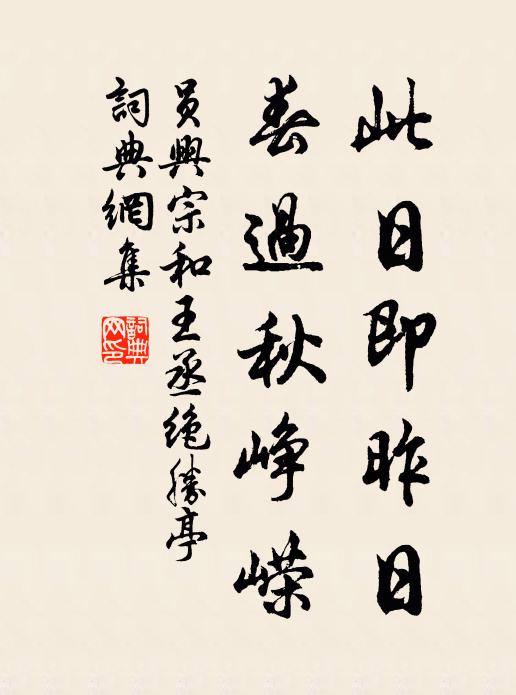 此日即昨日
春過秋峥嵘
員興宗和王丞绝勝亭
詞典網集
詞典网印